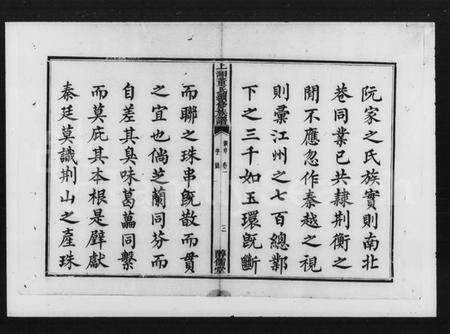 阮家之氏族實則南北
巷同業已共隷荆衡之
間不應忽作秦越之視
則彙江州之七百總鄴
下之三千如玉環既斷
而聯之珠串既散而貫
之宜也倘芝蘭同芬而
自差其臭味葛藟同繫
而莫庇其本根是璧獻
秦廷莫識荆山之產珠